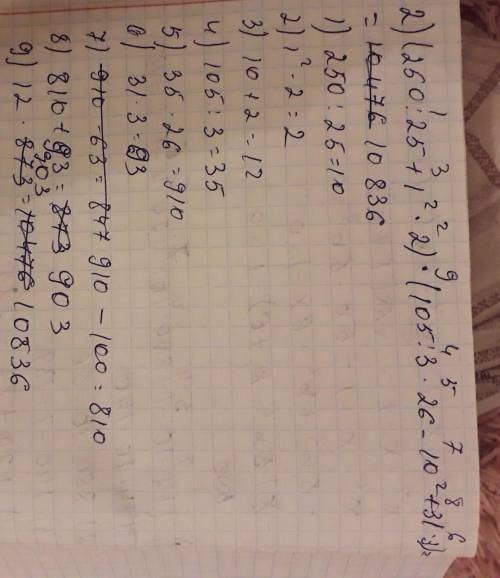 2) (250:25+1²·2)·(105:3·26-10²+31·3)=
= 10 476 10 836
1) 250:25=10
2) 1²·2=2
3) 10+2=12
4) 105:3=35
5) 35·26=910
6) 31·3=93
7) 910-63=847 910-100=810
8) 810+93=873 903
903
9) 12·873=10476 10836